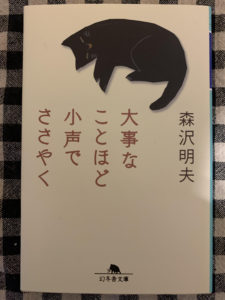 森沢明夫
大事な
ことほど
小声で
ささやく
幻冬舎文庫